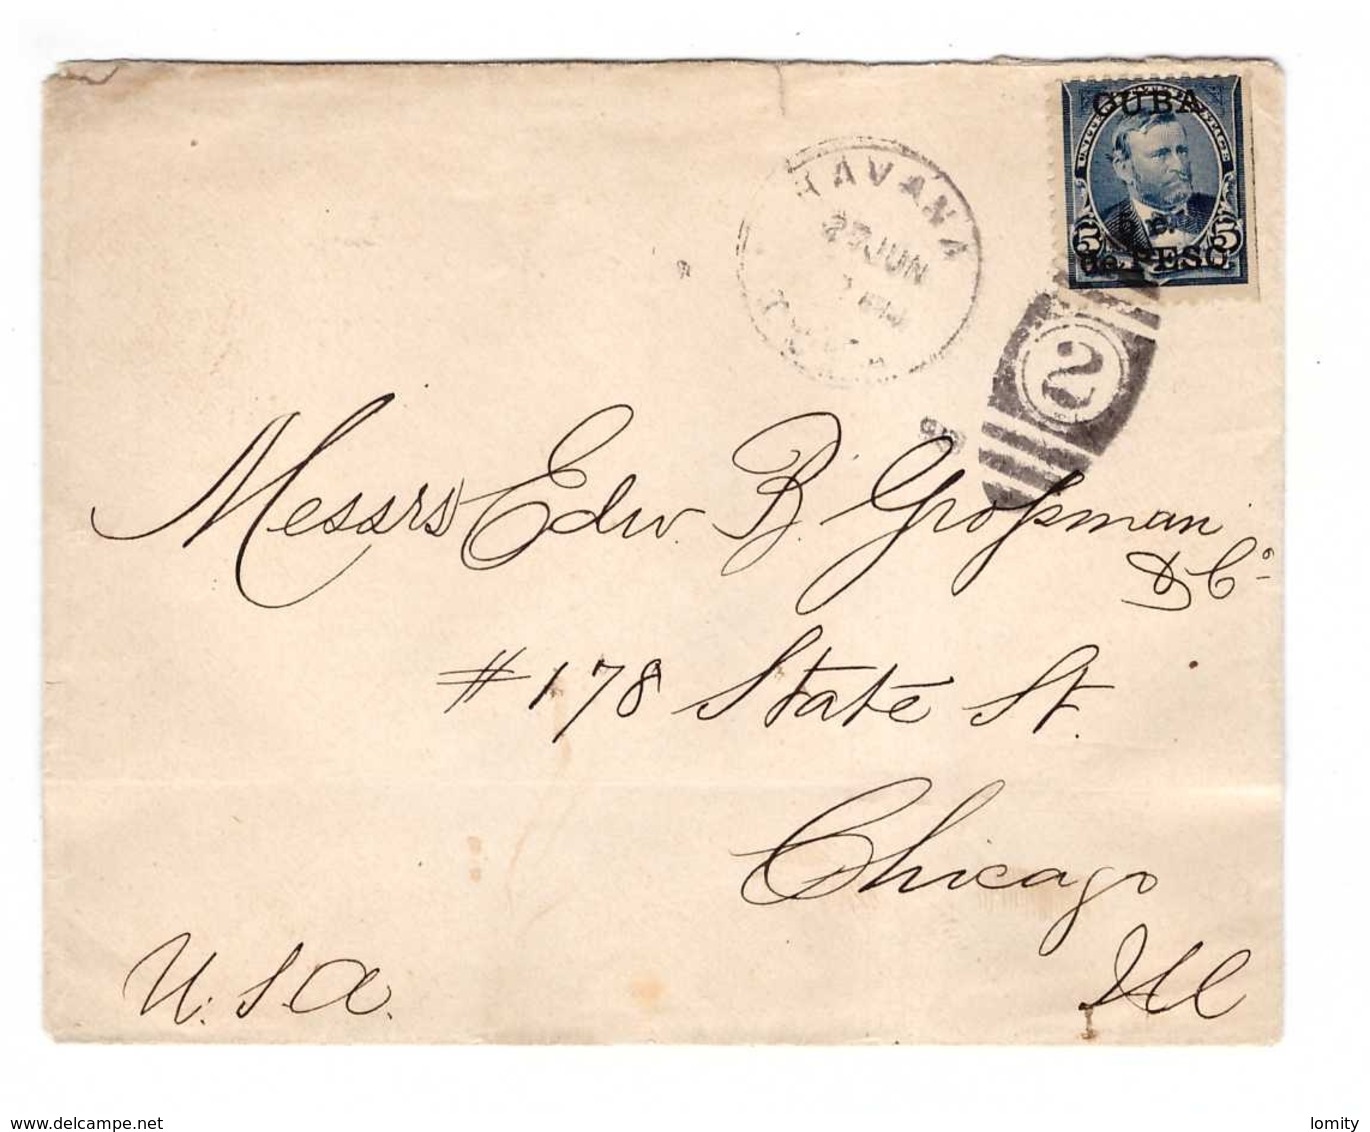 CUBA
UNITED STATES POSTAGE
5 5
5 c.
de PESO
HAVANA
JUN
2
Messrs Edw. B. Grossman
& Co.
# 178 State St.
Chicago
Ill
U.S.A.
www.delcampe.net
lomity